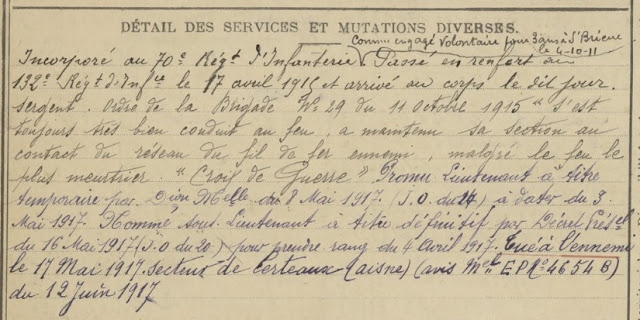 DÉTAIL DES SERVICES ET MUTATIONS DIVERSES.
Comme engagé volontaire pour 3 ans à St Brieuc
le 4-10-11
Incorporé au 70e Régt d'Infanterie Passé en renfort au
132e Régt d'Infie le 17 avril 1915 et arrivé au corps le dit jour.
sergent. Ordre de la Brigade No 29 du 11 octobre 1915 " s'est
toujours très bien conduit au feu, a maintenu sa section au
contact du réseau du fil de fer ennemi, malgré le feu le
plus meurtrier. " Croix de Guerre " Promu Lieutenant à titre
temporaire par Dion Mlle du 8 Mai 1917. (J.O. du 14) à dater du 3
Mai 1917. Nommé sous Lieutenant à titre définitif par Décret Présel
du 16 Mai 1917 (J.O du 20) pour prendre rang du 4 Avril 1917. Tué à l'ennemi
le 17 Mai 1917. secteur de Certeaux (aisne) (avis Mel E P No 4654 B)
du 12 Juin 1917